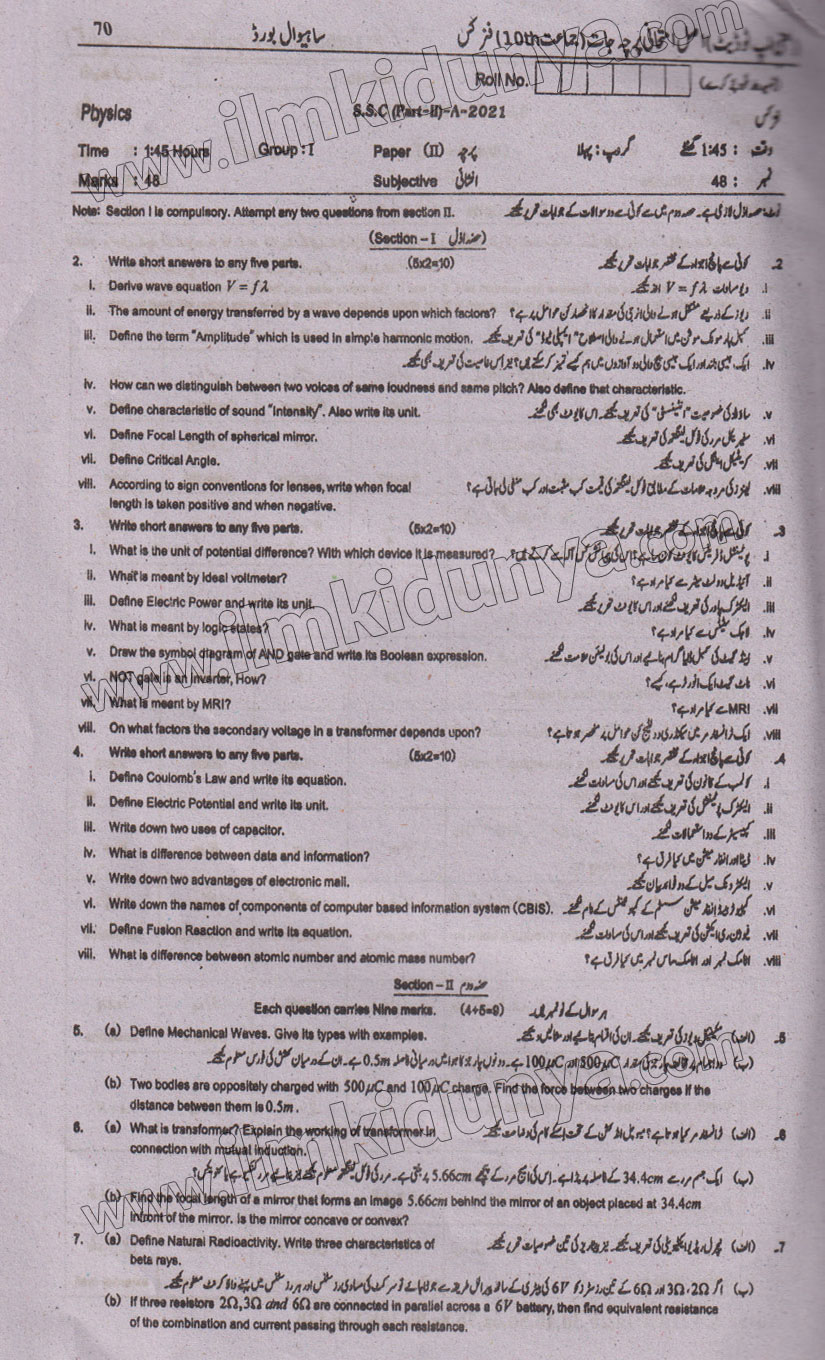 70
ساہیوال بورڈ
(جماعت 10th) فزکس
Roll No.
Physics
S.S.C (Part-II)-A-2021
Time : 1:45 Hours Group : I Paper (II) پرچہ گروپ : پہلا وقت : 1:45 گھنٹے
Marks : 48 Subjective انشائی نمبر : 48
Note: Section I is compulsory. Attempt any two questions from section II.
(Section – I حصہ اول)
2. Write short answers to any five parts. (5x2=10) کوئی سے پانچ اجزاء کے مختصر جوابات تحریر کیجئے۔ 2۔
i. Derive wave equation V = fλ
ii. The amount of energy transferred by a wave depends upon which factors?
iii. Define the term "Amplitude" which is used in simple harmonic motion.
iv. How can we distinguish between two voices of same loudness and same pitch? Also define that characteristic.
v. Define characteristic of sound "Intensity". Also write its unit.
vi. Define Focal Length of spherical mirror.
vii. Define Critical Angle. کریٹیکل اینگل کی تعریف کیجئے۔ vii.
viii. According to sign conventions for lenses, write when focal
length is taken positive and when negative.
3. Write short answers to any five parts. (5x2=10) کوئی سے پانچ اجزاء کے مختصر جوابات تحریر کیجئے۔ 3۔
i. What is the unit of potential difference? With which device it is measured?
ii. What is meant by ideal voltmeter? آئیڈیل وولٹ میٹر سے کیا مراد ہے؟ ii.
iii. Define Electric Power and write its unit.
iv. What is meant by logic states? لاجک سٹیٹس سے کیا مراد ہے؟ iv.
v. Draw the symbol diagram of AND gate and write its Boolean expression.
vi. NOT gate is an inverter, How? ناٹ گیٹ ایک انورٹر ہے، کیسے؟ vi.
vii. What is meant by MRI? MRI سے کیا مراد ہے؟ vii.
viii. On what factors the secondary voltage in a transformer depends upon?
4. Write short answers to any five parts. (5x2=10) کوئی سے پانچ اجزاء کے مختصر جوابات تحریر کیجئے۔ 4۔
i. Define Coulomb's Law and write its equation.
ii. Define Electric Potential and write its unit.
iii. Write down two uses of capacitor. کپیسیٹر کے دو استعمالات لکھئے۔ iii.
iv. What is difference between data and information? ڈیٹا اور انفارمیشن میں کیا فرق ہے؟ iv.
v. Write down two advantages of electronic mail. الیکٹرونک میل کے دو فوائد بیان کیجئے۔ v.
vi. Write down the names of components of computer based information system (CBIS).
vii. Define Fusion Reaction and write its equation.
viii. What is difference between atomic number and atomic mass number? اٹامک نمبر اور اٹامک ماس نمبر میں کیا فرق ہے؟ viii.
Section – II حصہ دوم
Each question carries Nine marks. (4+5=9) ہر سوال کے نو نمبر ہیں۔
5. (a) Define Mechanical Waves. Give its types with examples.
(b) Two bodies are oppositely charged with 500μC and 100μC charge. Find the force between two charges if the
distance between them is 0.5m.
6. (a) What is transformer? Explain the working of transformer in
connection with mutual induction.
(b) Find the focal length of a mirror that forms an image 5.66cm behind the mirror of an object placed at 34.4cm
infront of the mirror. Is the mirror concave or convex?
7. (a) Define Natural Radioactivity. Write three characteristics of
beta rays.
(b) If three resistors 2Ω,3Ω and 6Ω are connected in parallel across a 6V battery, then find equivalent resistance
of the combination and current passing through each resistance.
www.ilmkidunya.com
www.ilmkidunya.com
www.ilmkidunya.com